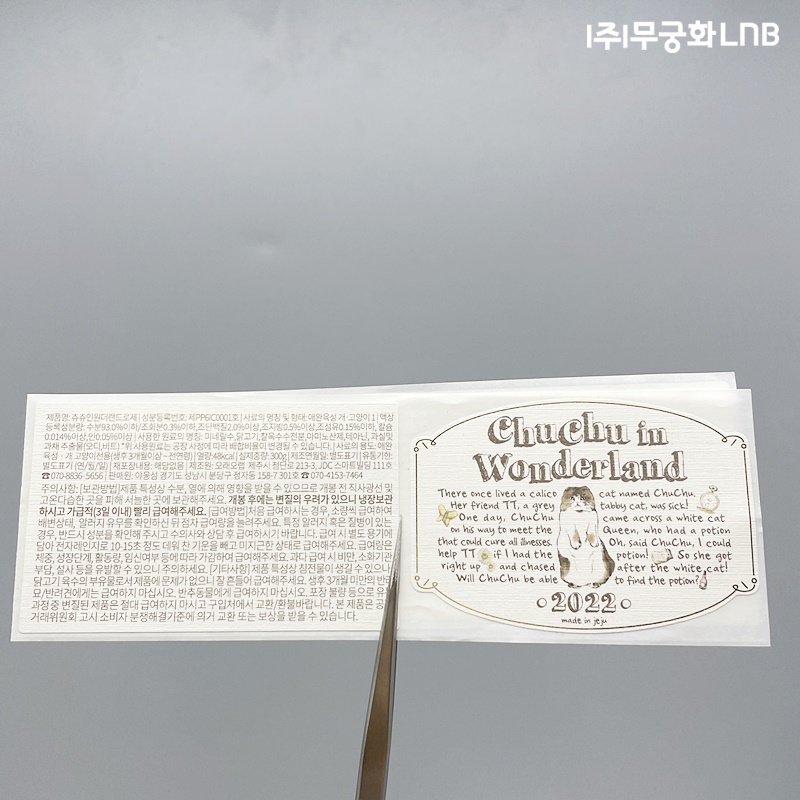 (주)무궁화LNB
제품명: 츄츄인원더랜드로제 | 성분등록번호: 제PP6IC0001호 | 사료의 명칭 및 형태: 애완육성 개·고양이 1 | 액상
등록성분량: 수분93.0%이하/조회분0.3%이하, 조단백질2.0%이상, 조지방0.5%이상, 조섬유0.15%이하, 칼슘
0.014%이상, 인0.05%이상 | 사용한 원료의 명칭: 미네랄수, 닭고기, 찰옥수수전분, 아미노산제, 테아닌, 과실및
과채 추출물(오디,비트) *위 사용원료는 공장 사정에 따라 배합비율이 변경될 수 있습니다. | 사료의 용도: 애완
육성 · 개 고양이선용(생후 3개월이상~전연령) | 열량:48kcal | 실제중량: 300g | 제조연월일: 별도표기 | 유통기한:
별도표기 (면/월/일) | 재포장내용: 해당없음 | 제조원: 모래오랩 제주시 첨단로 213-3, JDC 스마트빌딩 111호
☎070-8836-5656 | 판매원: 야옹심 경기도 성남시 분당구 정자동 158-7 301호 ☎070-4153-7464
주의사항: [보관방법]제품 특성상 수분, 열에 의해 영향을 받을 수 있으므로 개봉 전 직사광선 및
고온다습한 곳을 피해 서늘한 곳에 보관해주세요. 개봉 후에는 변질의 우려가 있으니 냉장보관
하시고 가급적(3일 이내) 빨리 급여해주세요. [급여방법]처음 급여하시는 경우, 소량씩 급여하여
배변상태, 알러지 유무를 확인하신 뒤 점차 급여량을 늘려주세요. 특정 알러지 혹은 질병이 있는
경우, 반드시 성분을 확인해 주시고 수의사와 상담 후 급여하시기 바랍니다. 급여 시 별도 용기에
담아 전자레인지로 10-15초 정도 데워 찬 기운을 빼고 미지근한 상태로 급여해주세요. 급여량은
체중, 성장단계, 활동량, 임신여부 등에 따라 가감하여 급여해주세요. 과다 급여 시 비만, 소화기관
부담, 설사 등을 유발할 수 있으니 주의하세요. [기타사항] 제품 특성상 침전물이 생길 수 있으나
닭고기 육수의 부유물로서 제품에 문제가 없으니 잘 흔들어 급여해주세요. 생후 3개월 미만의 반려
묘/반려견에게는 급여하지 마십시오. 반추동물에게 급여하지 마십시오. 포장 불량 등으로 유
과정 중 변질된 제품은 절대 급여하지 마시고 구입처에서 교환/환불바랍니다. 본 제품은 공
거래위원회 고시 소비자 분쟁해결기준에 의거 교환 또는 보상을 받을 수 있습니다.
Chuchu in
Wonderland
There once lived a calico cat named ChuChu.
Her friend TT, a grey tabby cat, was sick!
One day, ChuChu came across a white cat
on his way to meet the Queen, who had a potion
that could cure all illnesses. Oh, said ChuChu, I could
help TT if I had the potion! So she got
right up and chased after the white cat!
Will ChuChu be able to find the potion?
2022
made in jeju